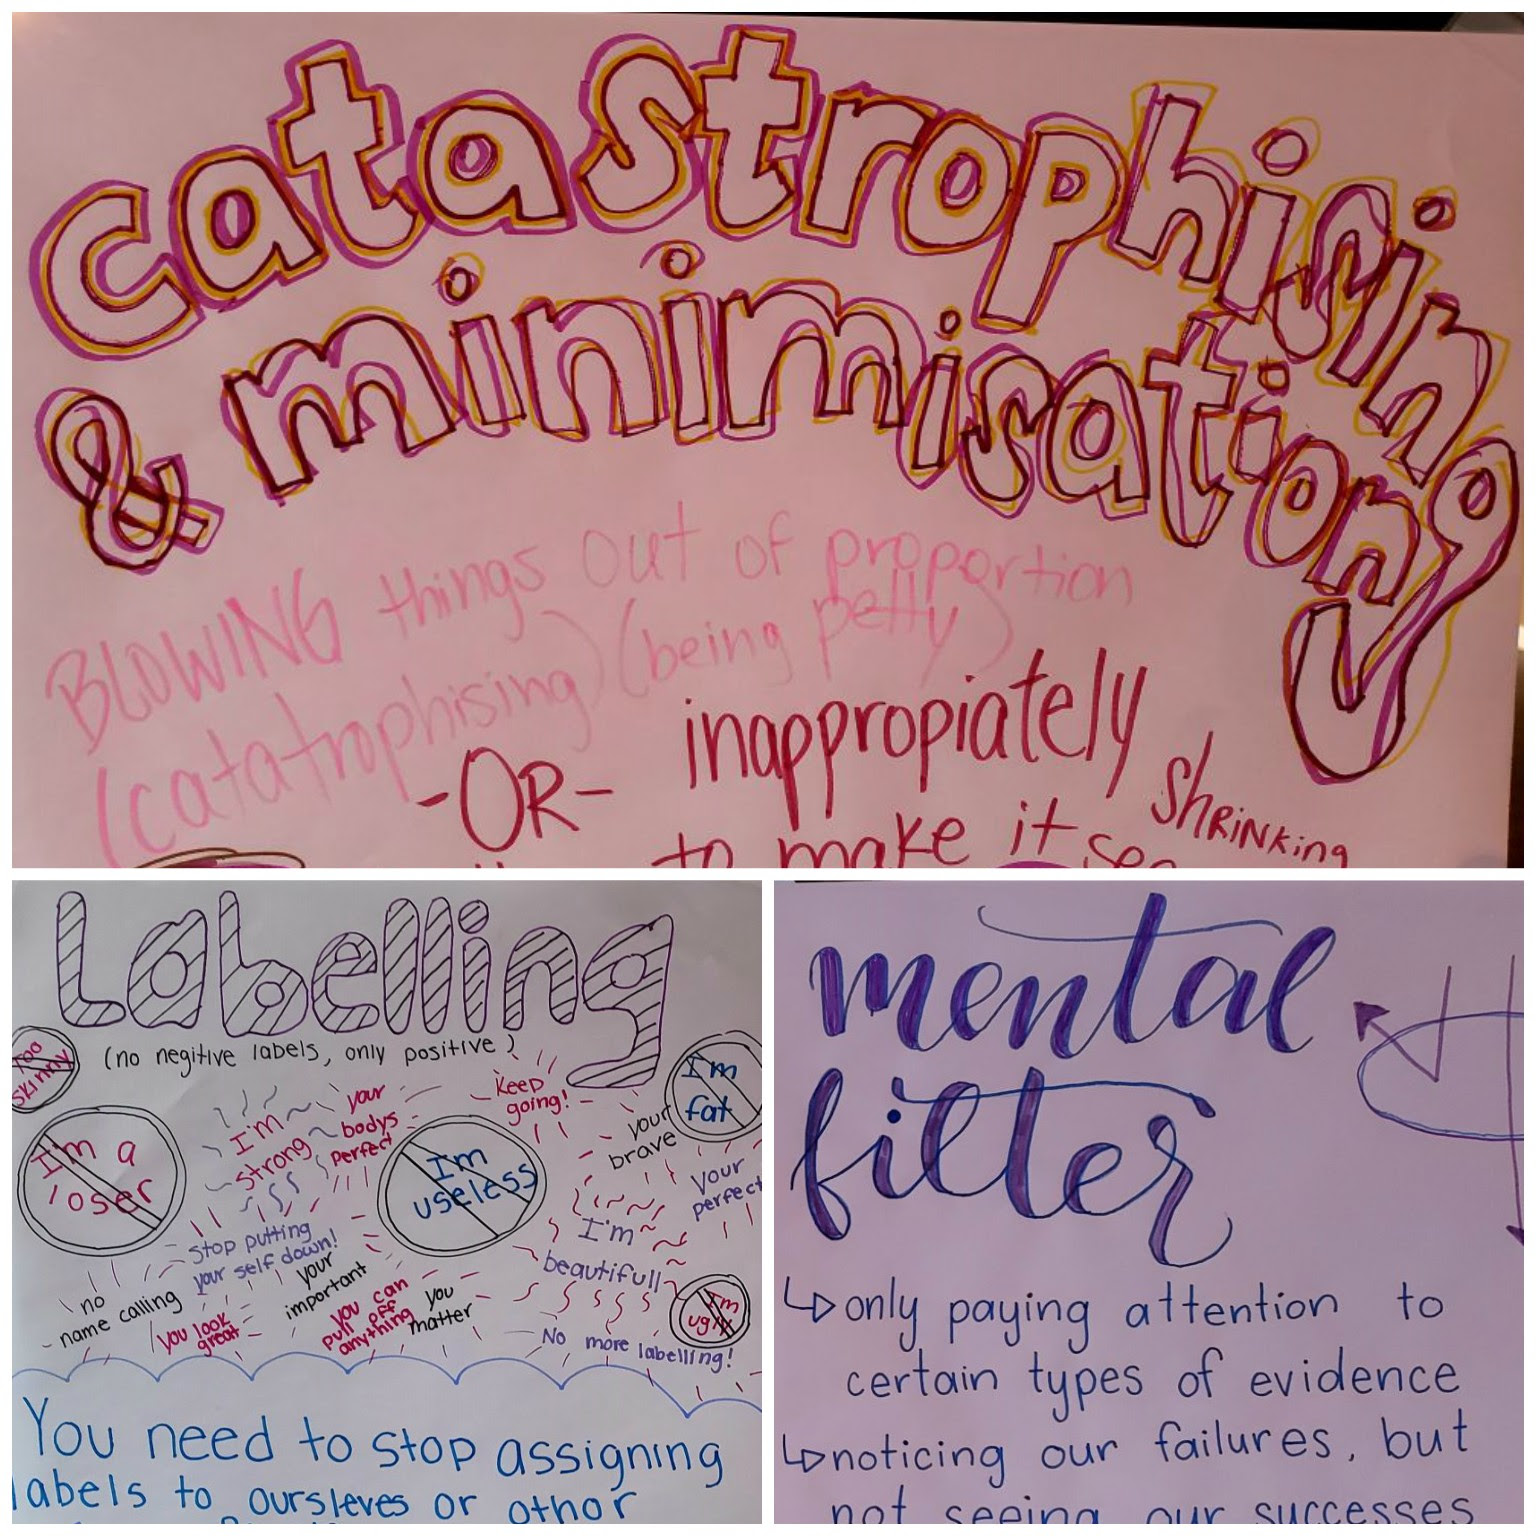 catastrophising
& minimisation
BLOWING things out of proportion
(catatrophising) (being petty)
-OR- inappropiately
shRiNKing
to make it
Labelling
(no negitive labels, only positive)
Too
skinny
I'm a
loser
I'm
strong
your
bodys
perfect
keep
going!
I'm
fat
your
brave
I'm
useless
your
perfect
stop putting
your self down!
I'm
beautifull
no
name calling
your
important
you look
great
you can
pull off
anything
you
matter
I'm
ugly
No more labelling!
You need to stop assigning
labels to oursleves or othor
mental
filter
only paying attention to
certain types of evidence
noticing our failures, but
not seeing our successes